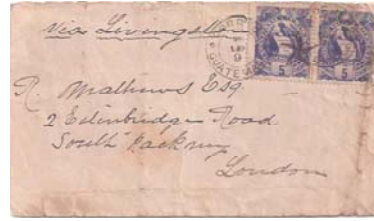 via Livingston
5 5
R. Mathews Esq
2 Edinbridge Road
South Hackney
London